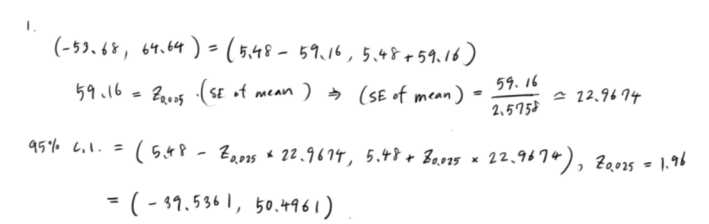 1.
(-53.68, 64.64) = (5.48 - 59.16, 5.48 + 59.16)
59.16 = Z0.005 · (SE of mean) ⇒ (SE of mean) = 59.16 / 2.5758 ≃ 22.9674
95% C.I. = (5.48 - Z0.025 × 22.9674, 5.48 + Z0.025 × 22.9674), Z0.025 = 1.96
= (-39.5361, 50.4961)